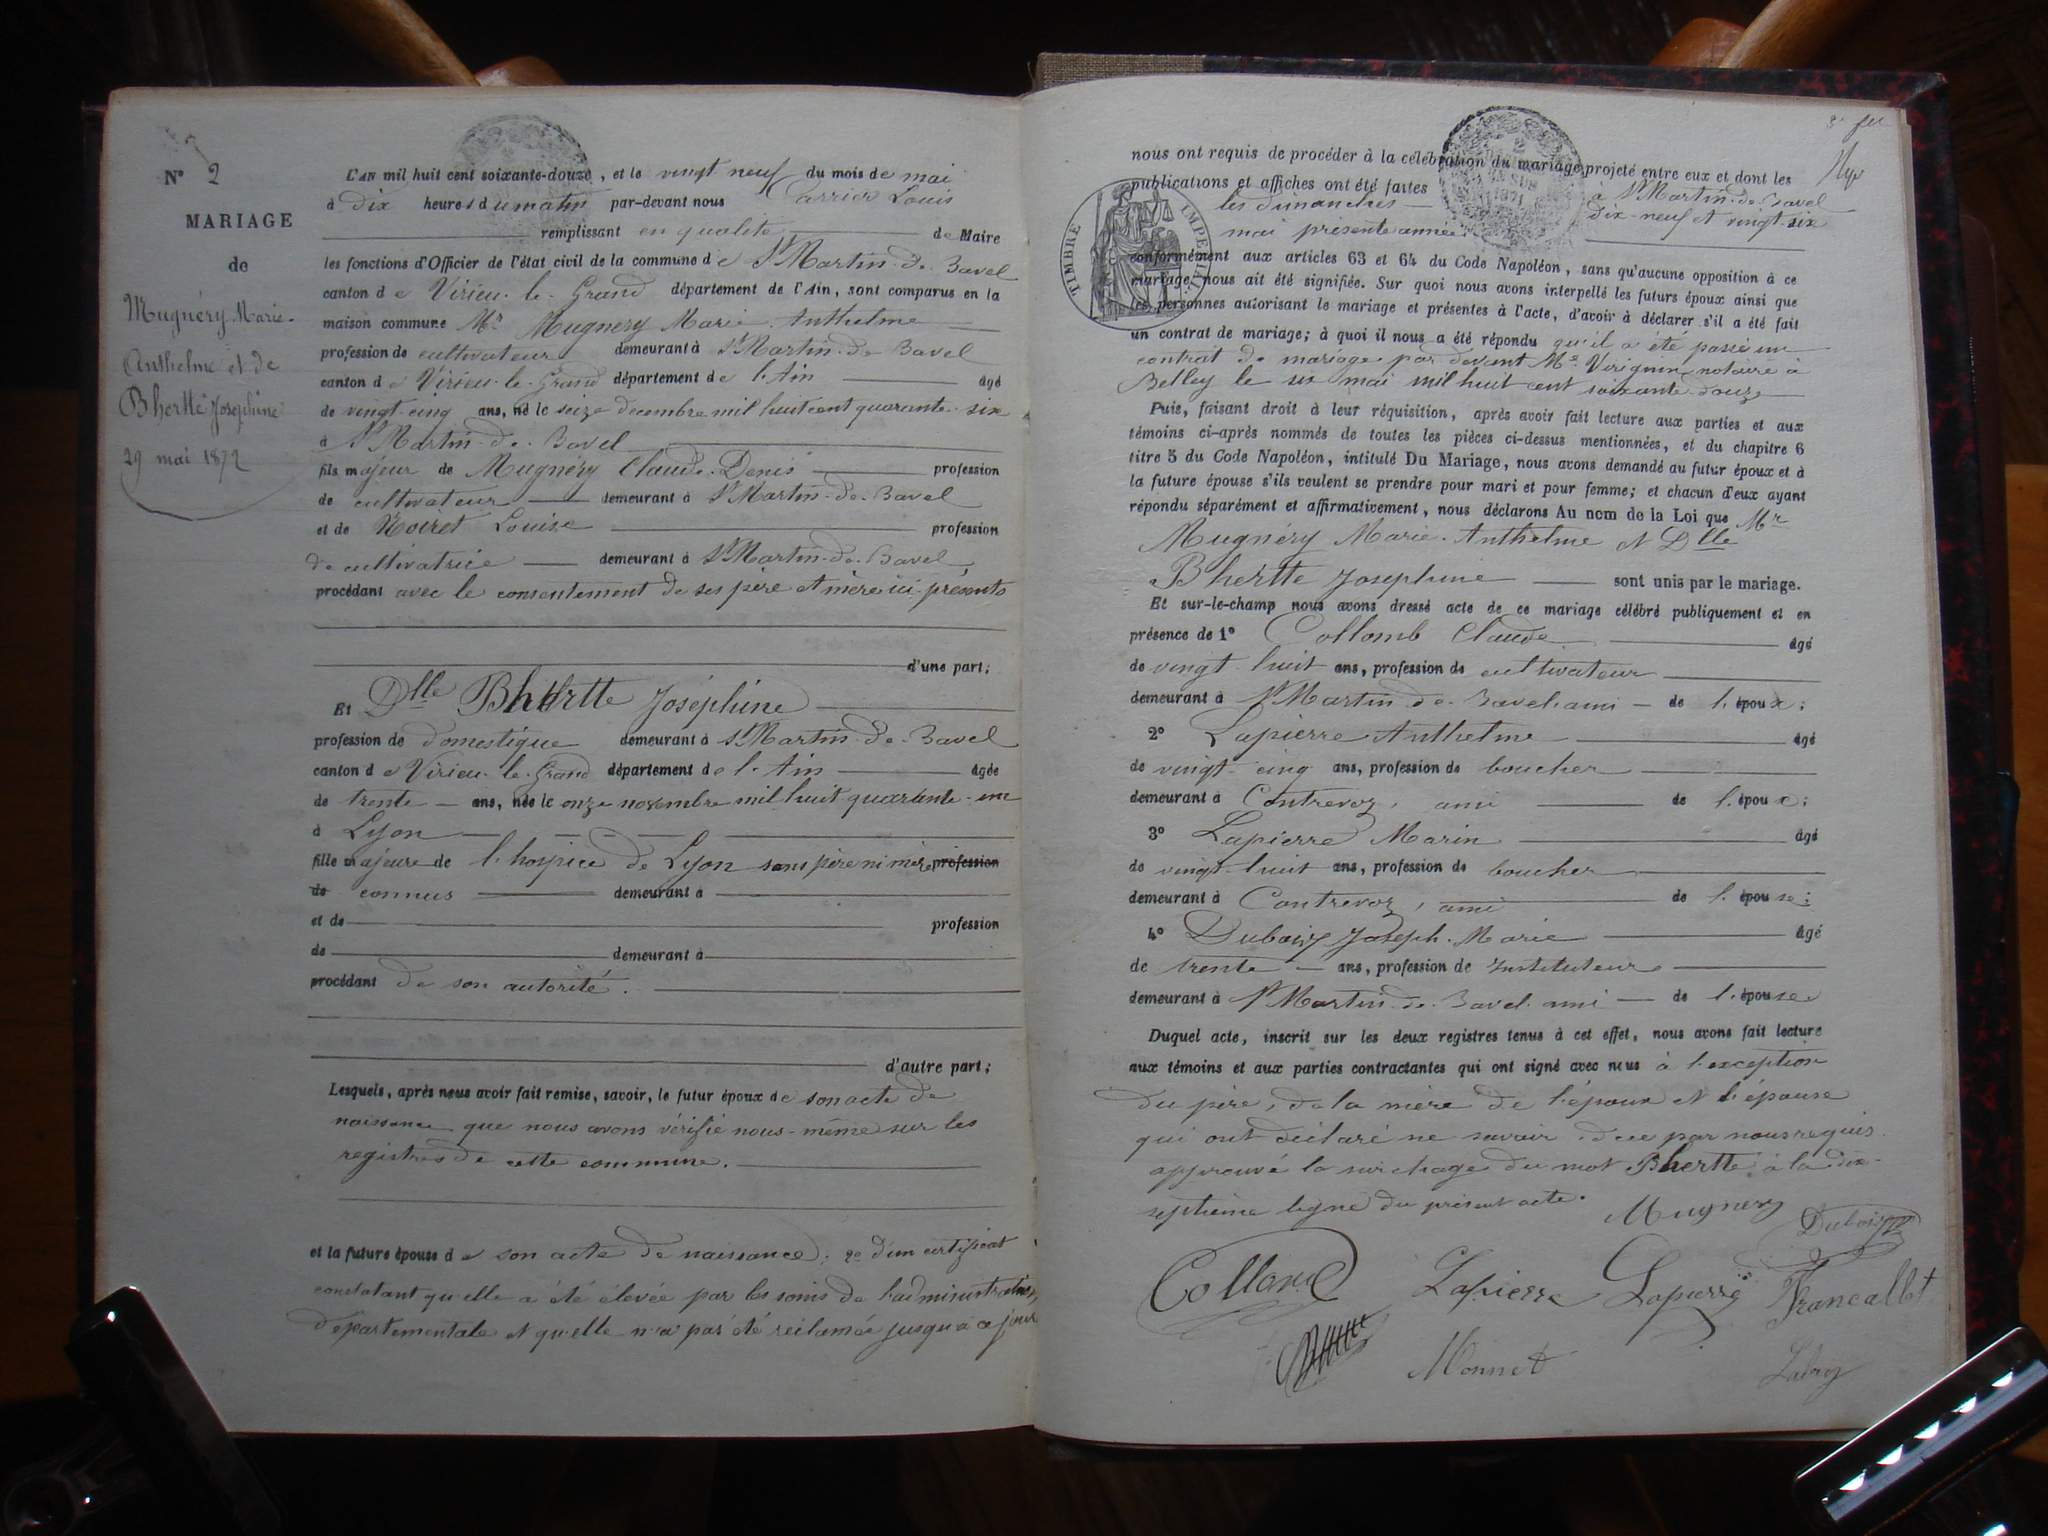 N° 2
MARIAGE
de
Mugnéry Marie-
Anthelme et de
Bhertte Joséphine
29 mai 1872
L'AN mil huit cent soixante-douze, et le vingt neuf du mois de mai
à dix heures du matin par-devant nous Carrier Louis
remplissant en qualité de Maire
les fonctions d'Officier de l'état civil de la commune de St Martin-de-Bavel
canton de Virieu-le-Grand département de l'Ain, sont comparus en la
maison commune Mr Mugnéry Marie-Anthelme
profession de cultivateur demeurant à St Martin-de-Bavel
canton de Virieu-le-Grand département de l'Ain âgé
de vingt-cinq ans, né le seize décembre mil huit cent quarante-six
à St Martin-de-Bavel
fils majeur de Mugnéry Claude-Denis profession
de cultivateur demeurant à St Martin-de-Bavel
et de Noiret Louise profession
de cultivatrice demeurant à St Martin-de-Bavel
procédant avec le consentement de ses père et mère ici présents
d'une part;
Et Dlle Bhertte Joséphine
profession de domestique demeurant à St Martin-de-Bavel
canton de Virieu-le-Grand département de l'Ain âgée
de trente ans, née le onze novembre mil huit quarante-un
à Lyon
fille majeure de l'hospice de Lyon sans père ni mère profession
de connus demeurant à
et de profession
de demeurant à
procédant de son autorité.
d'autre part;
Lesquels, après nous avoir fait remise, savoir, le futur époux de son acte de
naissance que nous avons vérifié nous-même sur les
registres de cette commune.
et la future épouse de son acte de naissance; 2° d'un certificat
constatant qu'elle a été élevée par les soins de l'administration
départementale et qu'elle n'a pas été réclamée jusqu'à ce jour
nous ont requis de procéder à la célébration du mariage projeté entre eux et dont les
publications et affiches ont été faites à St Martin-de-Bavel
les dimanches dix-neuf et vingt-six
mai présente année
TIMBRE IMPERIAL
conformément aux articles 63 et 64 du Code Napoléon, sans qu'aucune opposition à ce
mariage nous ait été signifiée. Sur quoi nous avons interpellé les futurs époux ainsi que
les personnes autorisant le mariage et présentes à l'acte, d'avoir à déclarer s'il a été fait
un contrat de mariage; à quoi il nous a été répondu qu'il a été passé un
contrat de mariage par devant Me notaire à
Belley le six mai mil huit cent soixante-douze
Puis, faisant droit à leur réquisition, après avoir fait lecture aux parties et aux
témoins ci-après nommés de toutes les pièces ci-dessus mentionnées, et du chapitre 6
titre 5 du Code Napoléon, intitulé Du Mariage, nous avons demandé au futur époux et à
la future épouse s'ils veulent se prendre pour mari et pour femme; et chacun d'eux ayant
répondu séparément et affirmativement, nous déclarons Au nom de la Loi que Mr
Mugnéry Marie-Anthelme et Dlle
Bhertte Joséphine sont unis par le mariage.
Et sur-le-champ nous avons dressé acte de ce mariage célébré publiquement et en
présence de 1° Collomb Claude âgé
de vingt-huit ans, profession de cultivateur
demeurant à St Martin-de-Bavel ami de l'époux;
2° Lapierre Anthelme âgé
de vingt-cinq ans, profession de boucher
demeurant à Contrevoz, ami de l'époux;
3° Lapierre Marin âgé
de vingt-huit ans, profession de boucher
demeurant à Contrevoz, ami de l'épouse;
4° Duboisy Joseph-Marie âgé
de trente ans, profession de Instituteur
demeurant à St Martin-de-Bavel ami de l'épouse
Duquel acte, inscrit sur les deux registres tenus à cet effet, nous avons fait lecture
aux témoins et aux parties contractantes qui ont signé avec nous à l'exception
du père, de la mère de l'époux et l'épouse
qui ont déclaré ne savoir de ce par nous requis.
approuvé la surchage du mot Bhertte à la dix-
septième ligne du présent acte.
Mugnery
Collomb Lapierre Lapierre Francallet
Monnet